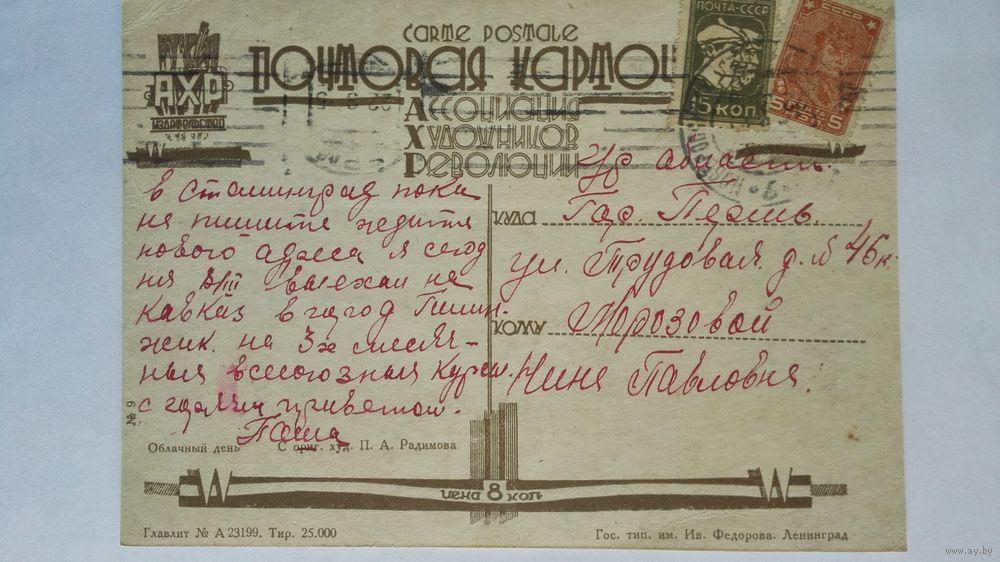 CARTE POSTALE
ПОЧТОВАЯ КАРТОЧ
АССОЦИАЦИЯ
ХУДОЖНИКОВ
РЕВОЛЮЦИИ
АХР
ИЗДАТЕЛЬСТВО
ПОЧТА-СССР
15 КОП.
СССР
5 5
в Сталинград пока
не пишите ждите
нового адреса я сегод
ня выехал на
Кавказ в город
жик. на 3х месяч-
ныя всесоюзныя курсы.
с горячим приветом.
Паша
Ур области.
КУДА Гор. Пермь.
ул. Трудовая д. № 46
КОМУ Морозовой
Нине Павловне.
№ 9
Облачный день С ориг. худ. П. А. Радимова
цена 8 коп.
Главлит № А 23199. Тир. 25.000
Гос. тип. им. Ив. Федорова. Ленинград
www.ay.by